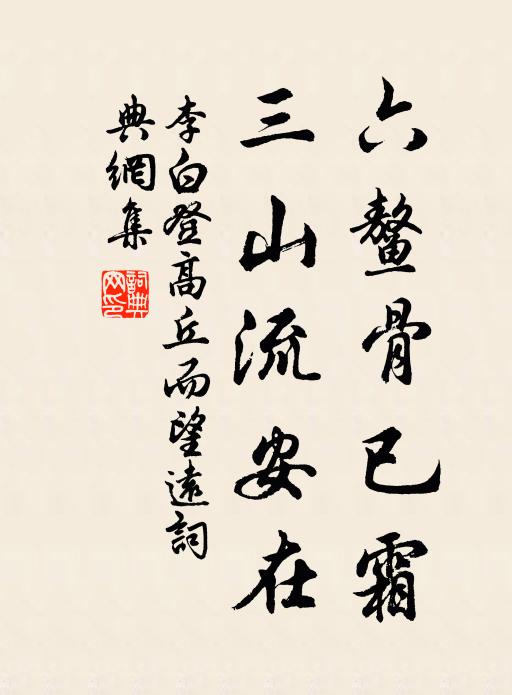 六鰲骨已霜
三山流安在
李白登高丘而望遠詞
典網集
詞典
网印